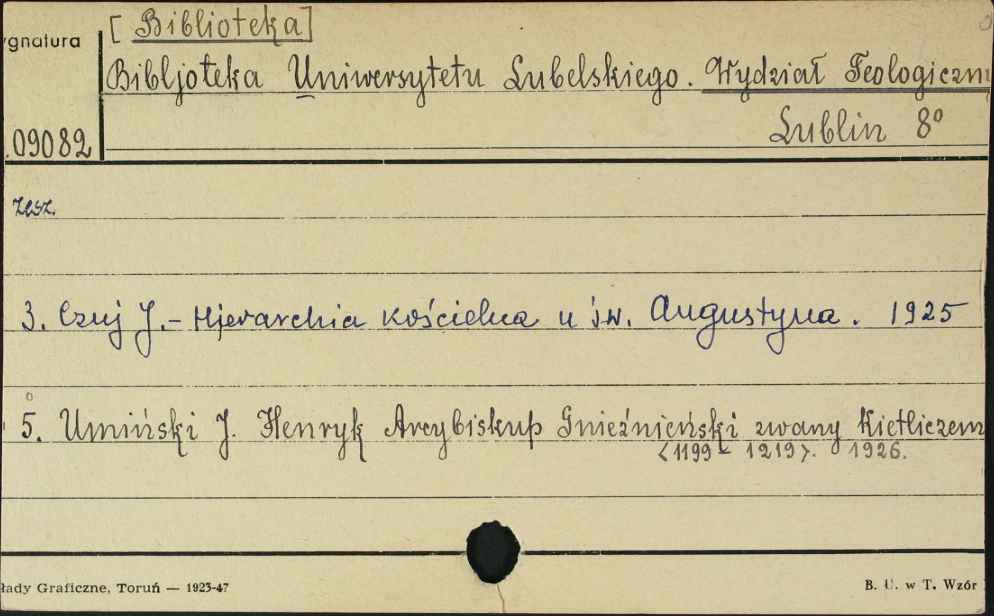 [Biblioteka]
ygnatura
Bibljoteka Uniwersytetu Lubelskiego. Wydział Teologiczny
Lublin 8°
.09082
zesz.
3. Czuj J. - Hjerarchia kościelna u św. Augustyna. 1925
5. Umiński J. Henryk Arcybiskup Gnieźnieński zwany Kietliczem
<1199 - 1219>. 1926.
łady Graficzne, Toruń — 1923-47
B. U. w T. Wzór